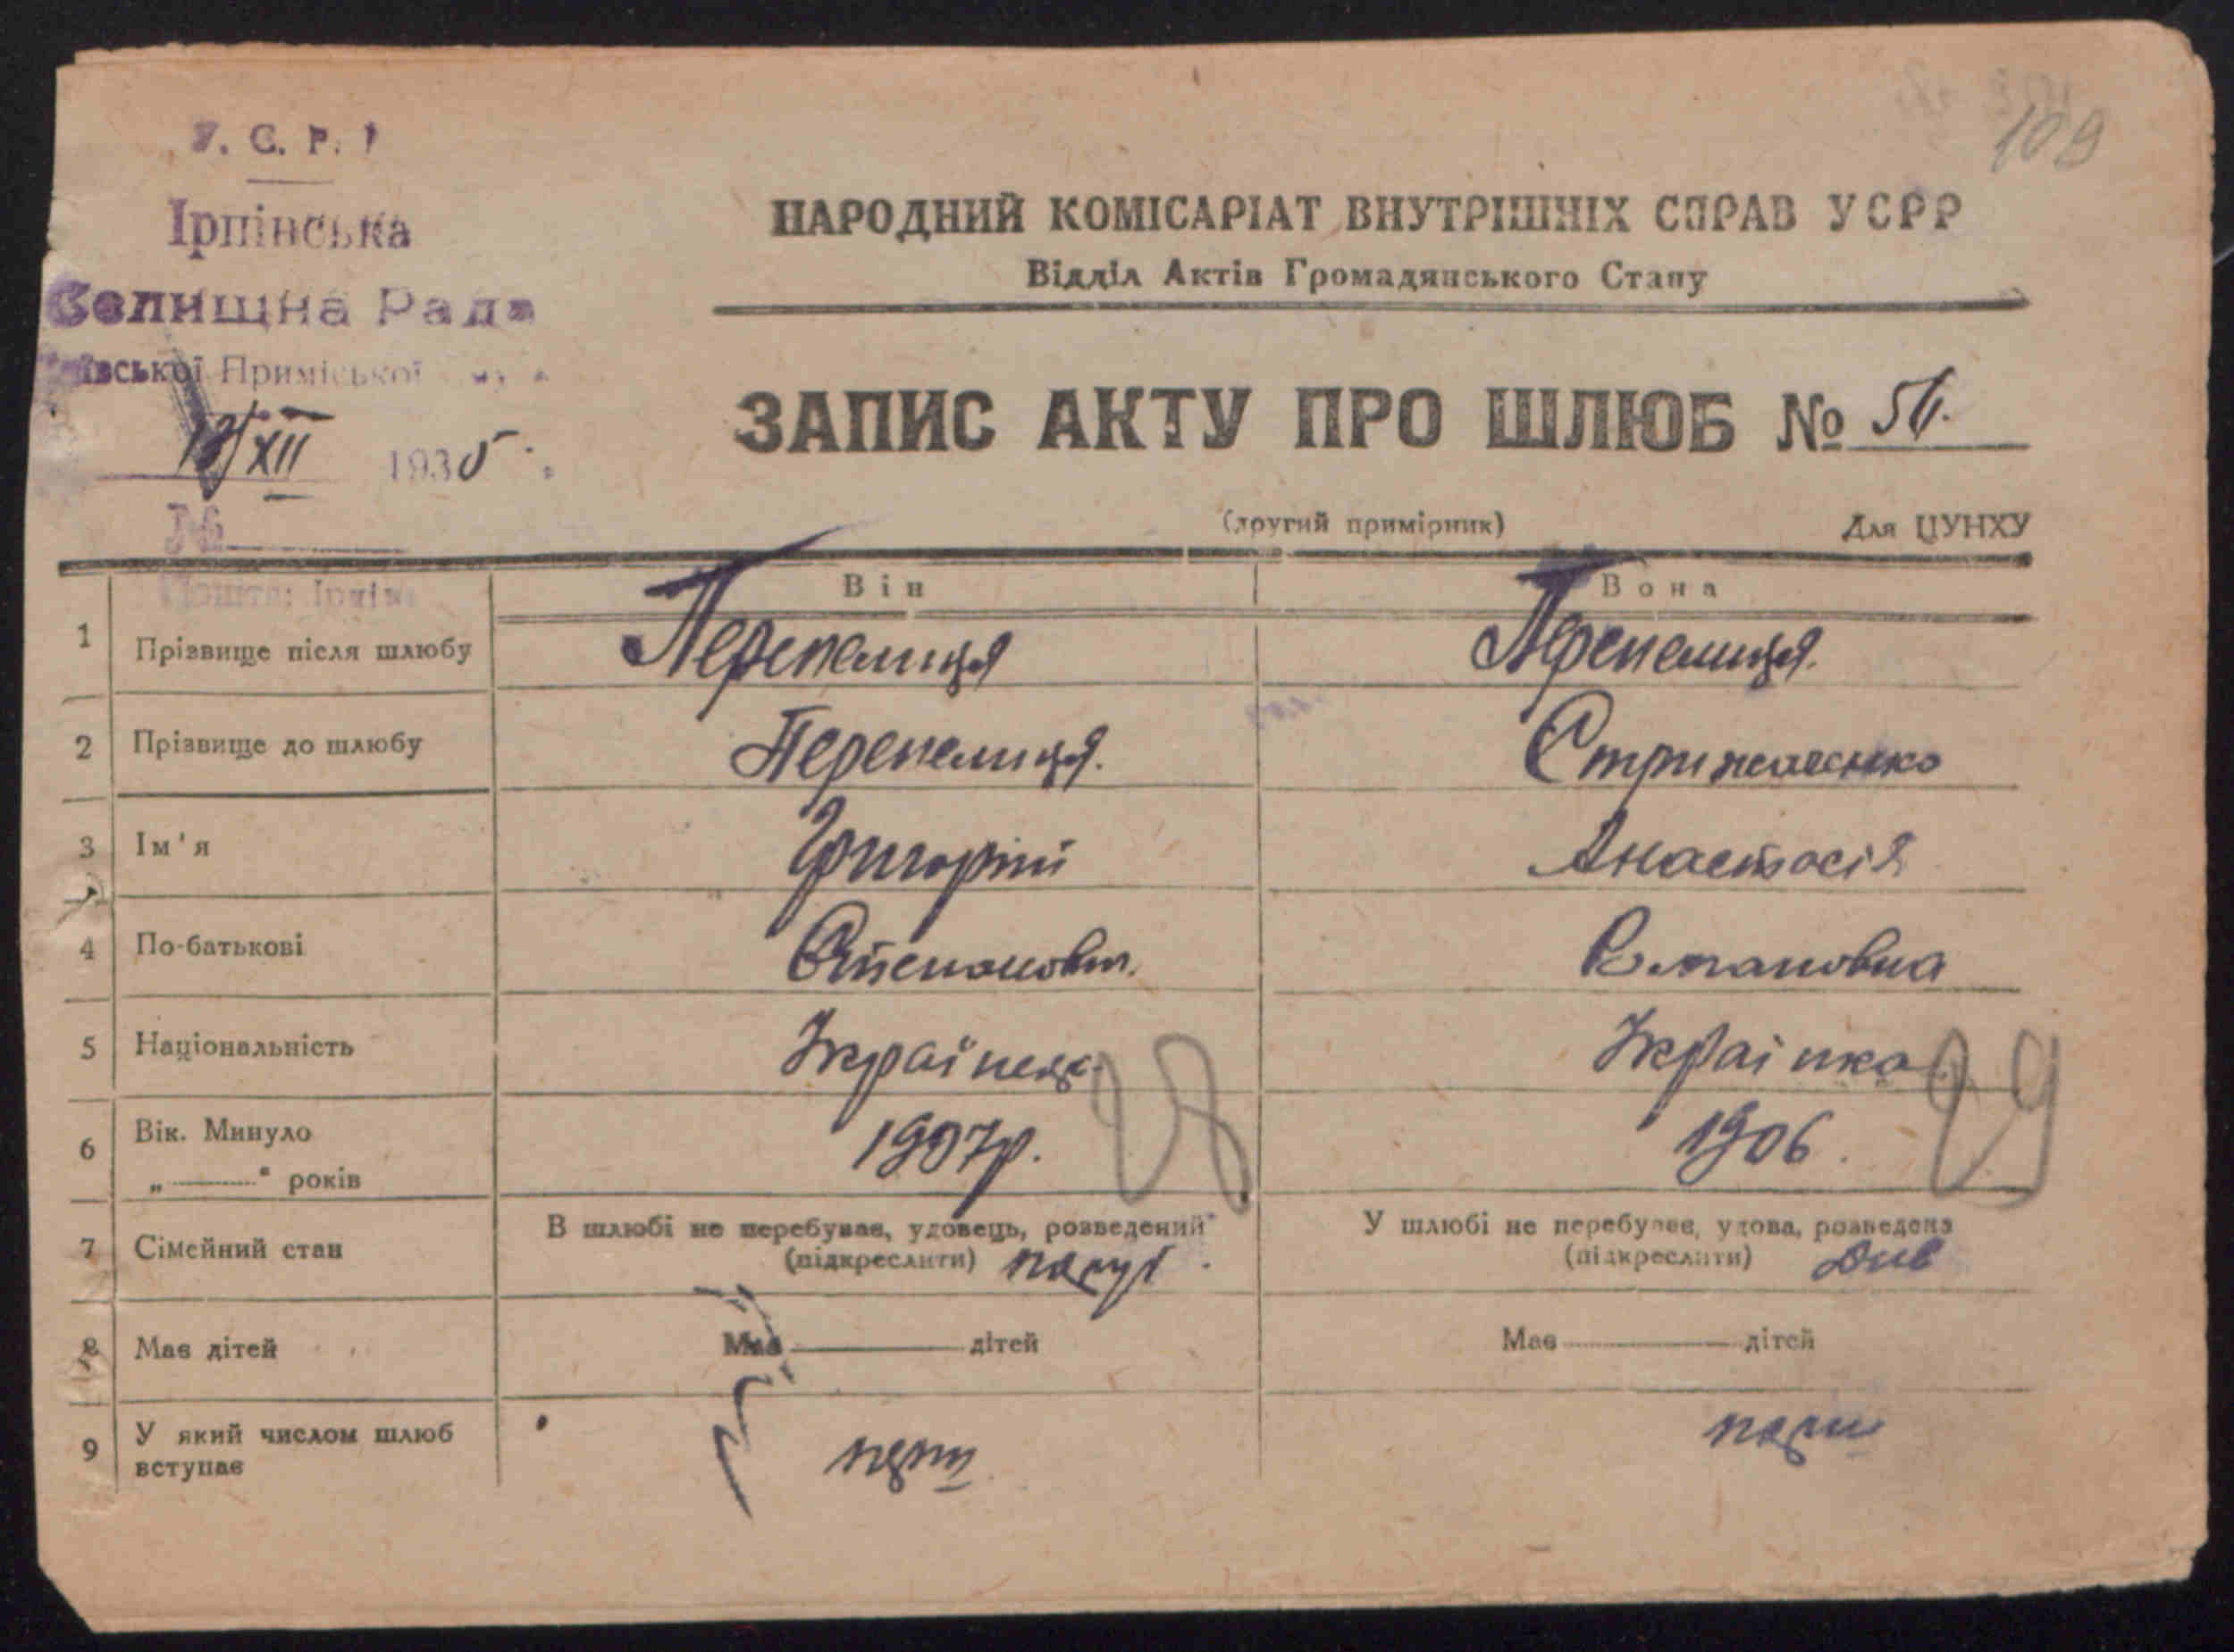 У. С. Р. Р
Ірпінська
Селищна Рада
Київської Приміської
XII 1935
№
Пошта: Ірпінь
109
НАРОДНИЙ КОМІСАРІАТ ВНУТРІШНІХ СПРАВ УСРР
Відділ Актів Громадянського Стану
ЗАПИС АКТУ ПРО ШЛЮБ №
(другий примірник) Для ЦУНХУ
Він Вона
1 Прізвище після шлюбу Перепелиця Перепелиця.
2 Прізвище до шлюбу Перепелиця.
3 Ім'я Григорій Анастасія
4 По-батькові Степанович. Романовна
5 Національність Українець. Українка
6 Вік. Минуло 1907р. 28 1906. 29
„ “ років
7 Сімейний стан В шлюбі не перебував, удовець, розведений У шлюбі не перебуває, удова, розведена
(підкреслити) паруб. (підкреслити) дів
8 Має дітей Має дітей Має дітей
9 У який числом шлюб вступає перш перш